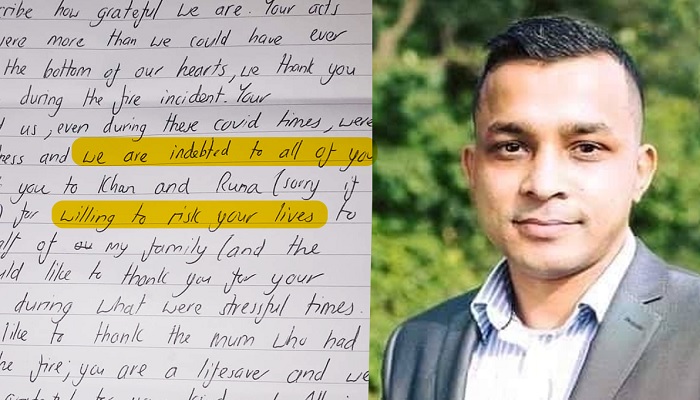 cribe how grateful we are. Your acts
were more than we could have ever
the bottom of our hearts, we thank you
during the fire incident. Your
d us, even during these covid times, were
ness and we are indebted to all of you
you to Khan and Runa (sorry if
) for willing to risk your lives to
alf of my family (and the
uld like to thank you for your
during what were stressful times.
like to thank the mum who had
he fire; you are a lifesaver and we